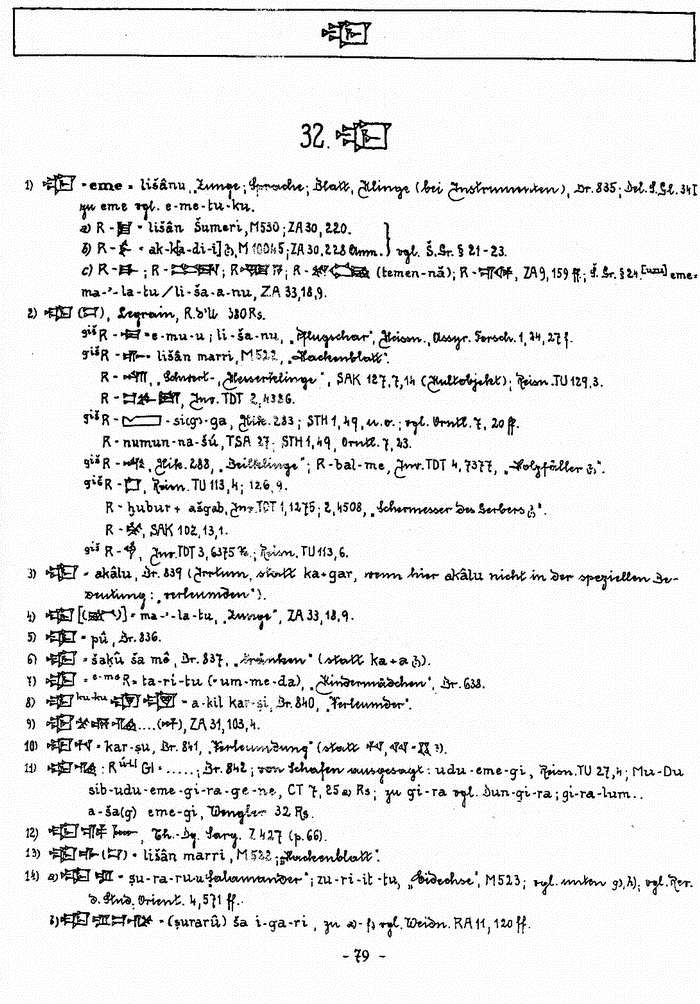 32.
1) - eme = lišânu, „Zunge; Sprache; Blatt, Klinge (bei Instrumenten), Br. 835; Del. S.Gl. 34
zu eme vgl. e-me-tu-ku.
a) R - = lišân Šumeri, M 530; ZA 30, 220.
b) R - = ak-ka-di-i], M 10045; ZA 30, 228 Anm. } vgl. Š.Gr. § 21-23.
c) R - ; R - ; R - ; R - (temen-nā); R - , ZA 9, 159 ff; Š.Gr. § 24. eme =
ma-'-la-tu / li-ša-a-nu, ZA 33, 18, 9.
2) , Legrain, 380 Rs.
giš R - = e-mu-u; li-ša-nu, „Pflugschar", Meissn., Assyr. Forsch. 1, 34, 27 f.
giš R - = lišân marri, M 522, „Hackenblatt".
R - , „Schwert-, Messerklinge", SAK 127, 7, 14 (Kultobjekt); Reisn. TU 129, 3.
R - , Inv. TDT 2, 4386.
giš R - -si(g)-ga, 283; STH 1, 49, u.o.; vgl. Orntl. 7, 20 ff.
R - numun-na-šú, TSA 27; STH 1, 49, Orntl. 7, 23.
giš R - , 288, „Beilklinge"; R - bal-me, Inv. TDT 4, 7377, „Holzfäller".
giš R - , Reisn. TU 113, 4; 126, 9.
R - ḫubur + ašgab, Inv. TDT 1, 1275; 2, 4508, „Schermesser des Gerbers".
R - , SAK 102, 13, 1.
giš R - , Inv. TDT 3, 6375; Reisn. TU 113, 6.
3) = akâlu, Br. 839 (Irrtum, statt ka+gar, wenn hier akâlu nicht in der speziellen Be-
deutung: „verleumden").
4) = ma-'-la-tu, „Zunge", ZA 33, 18, 9.
5) = pû, Br. 836.
6) = šaḳû ša mê, Br. 837, „tränken" (statt ka+a).
7) = e-me R = ta-ri-tu (= um-me-da), „Kindermädchen", Br. 638.
8) ku-ku = a-kil kar-ṣi, Br. 840, „Verleumder".
9) ...., ZA 31, 103, 4.
10) = kar-ṣu, Br. 841, „Verleumdung" (statt ?).
11) : R GI = ....., Br. 842; von Schafen ausgesagt: udu-eme-gi, Reisn. TU 27, 4; Mu-Du
sib-udu-eme-gi-ra-ge-ne, CT 7, 25 a) Rs; zu gi-ra vgl. Dun-gi-ra; gi-ra-lum..
a-ša(g) eme-gi, Wengler 32 Rs.
12) , Th.-Dg. Sarg. Z 427 (p. 66).
13) = lišân marri, M 522; „Hackenblatt".
14) a) = ṣu-ra-ru-u „Salamander"; zu-ri-it-tu, „Eidechse", M 523; vgl. unten g), h); vgl. Rev.
d. Stud. Orient. 4, 571 ff.
b) = (ṣurarû) ša i-ga-ri, zu a) - f) vgl. Weidn. RA 11, 120 ff.
- 79 -